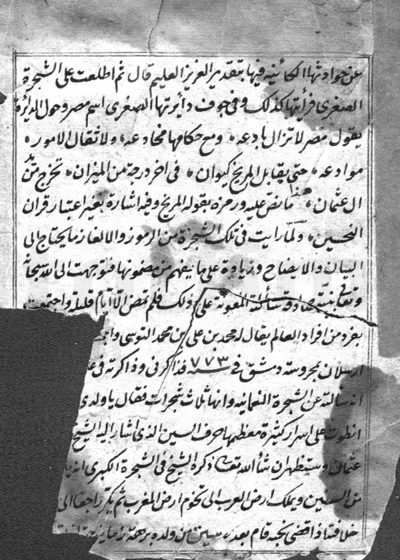 عن حوادثها الكائنية فيها بتقدير العزيز العليم قال ثم اطلعت على الشجرة
الصغرى فرأيتها كذلك وفى جوف دائرتها الصغرى اسم مصر وحول الدائرة
يقول مصر لا تزال بادعه، ومع حكامها مخادعه، ولا تقال الامور
موادعه، حتى يقابل المريخ كيوان، فى اخر درجة من الميزان، تخرج من يد
ال عثمان، هذا ما نص عليه ورمزه بقوله المريخ وفيه اشارة بغير اعتبار قران
النحسين، ولما رايت فى تلك الشجرة من الرموز والالغاز ما يحتاج الى
البيان والايضاح وزيادة على ما يفهم من مضمونها فتوجهت الى الله سبحانه
وتعالى وسألته المعونة على ذلك فلم تمض الا ايام قلايل واجتمعت
بفرد من افراد العالم يقال له محمد بن على بن محمد التوسى
ارسلان بمحروسة دمشق فى ٧٧٣ فذاكرنى وذاكرته فى
انه سالته عن الشجرة النعمانية وانها ثلاث شجرات فقال يا ولدى
انطوت على اسرار كثيرة معظمها حرف السين الذى اشار اليه الشيخ
عثمان وستظهر ان شاء الله تعالى ذكره الشيخ فى الشجرة الكبرى
من السنين ويملك ارض العرب الى تخوم ارض المغرب ثم يكر راجعا الى
خلافته فاذا قضى نحبه قام بعده من ولده برهة